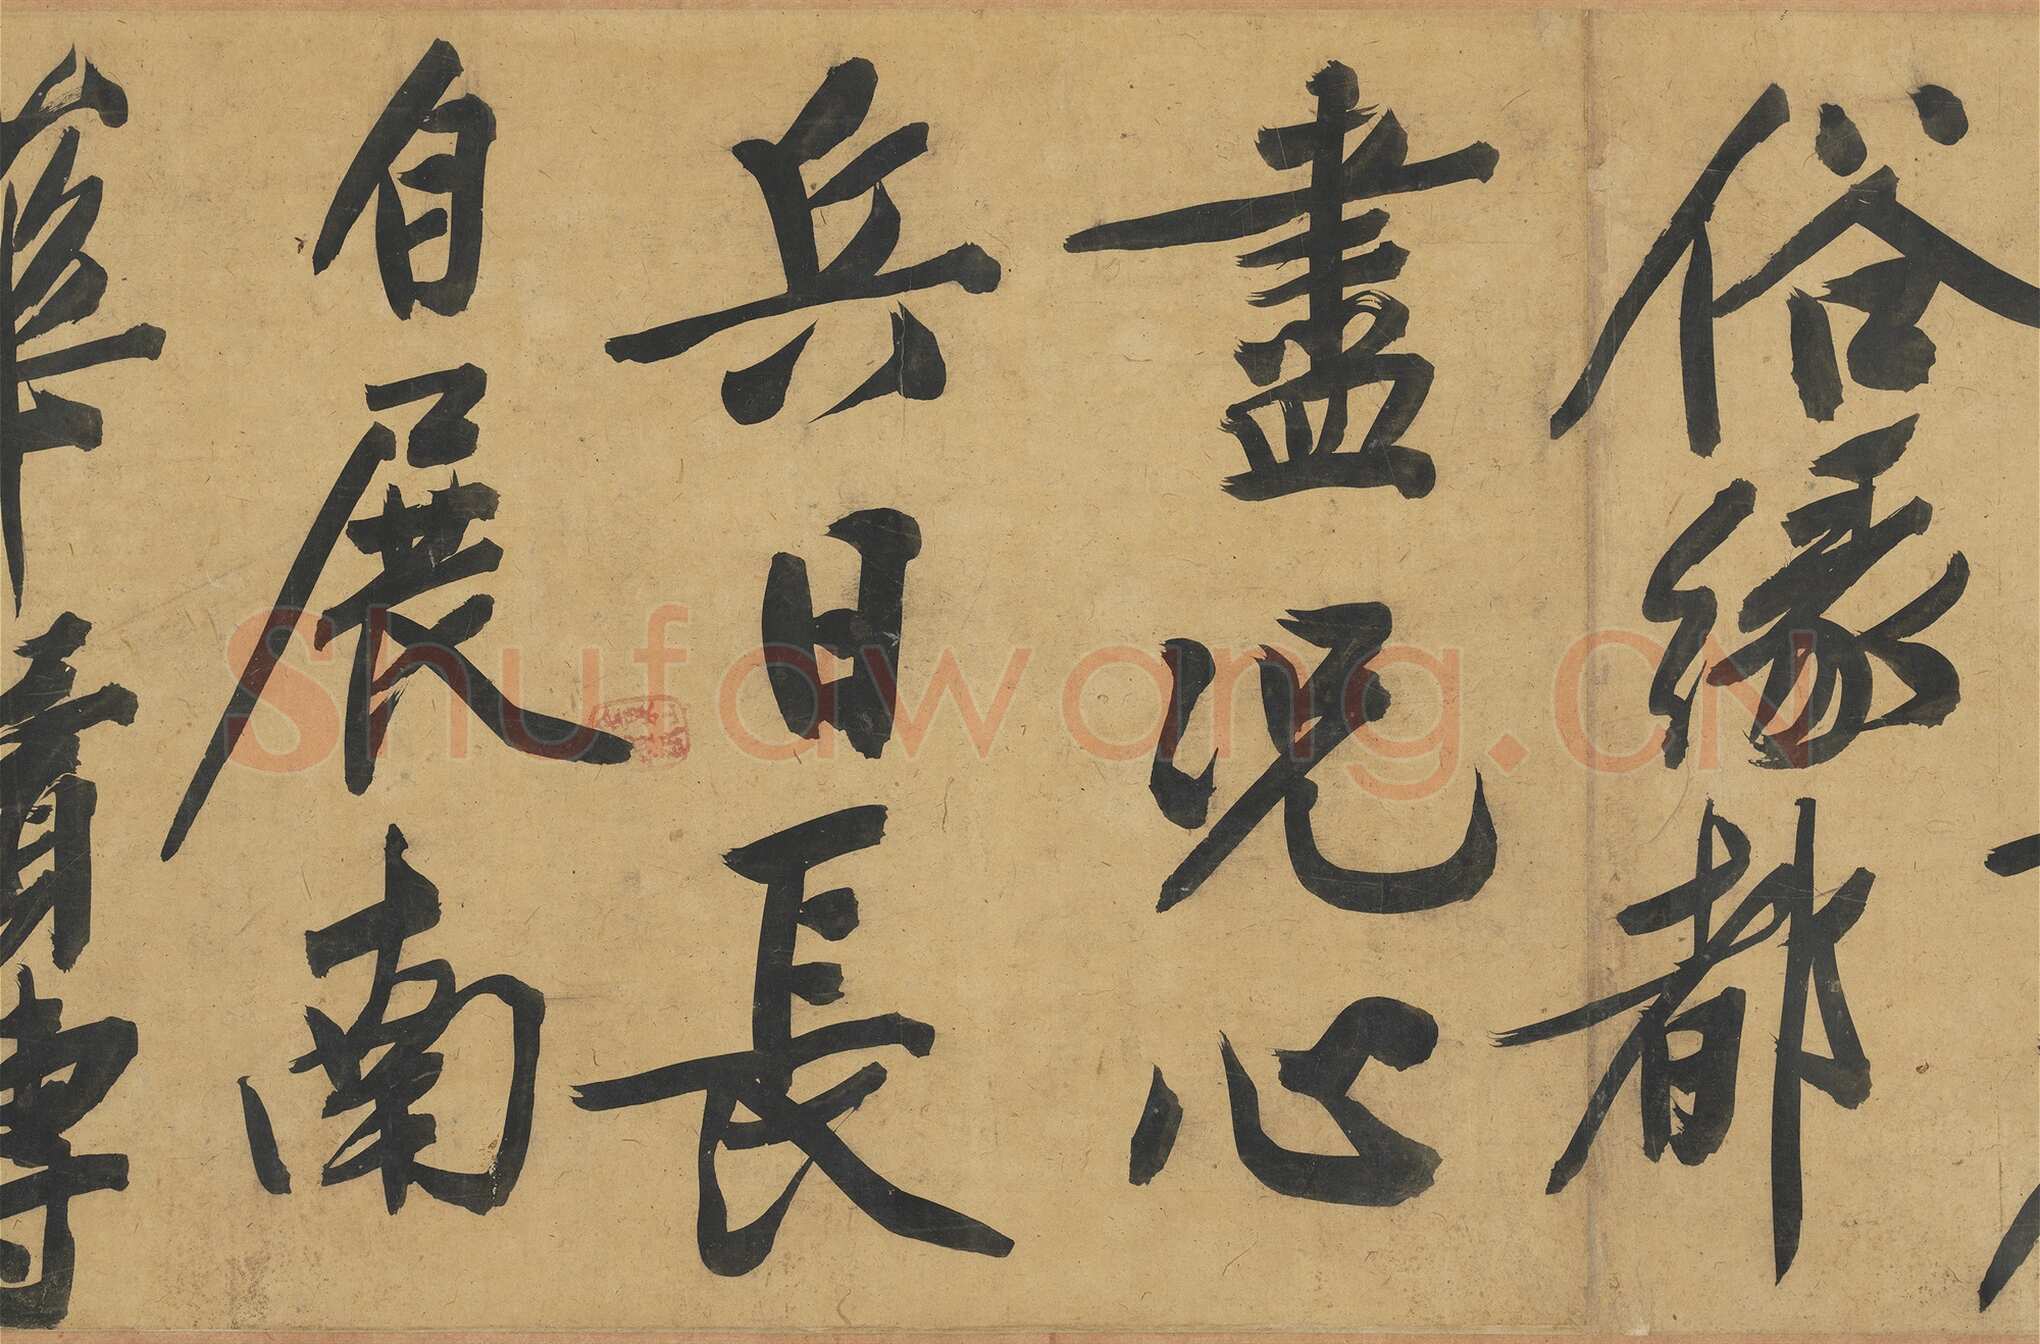 俗緣都
盡況心
兵日長
自展南
華
Shufawang.CN